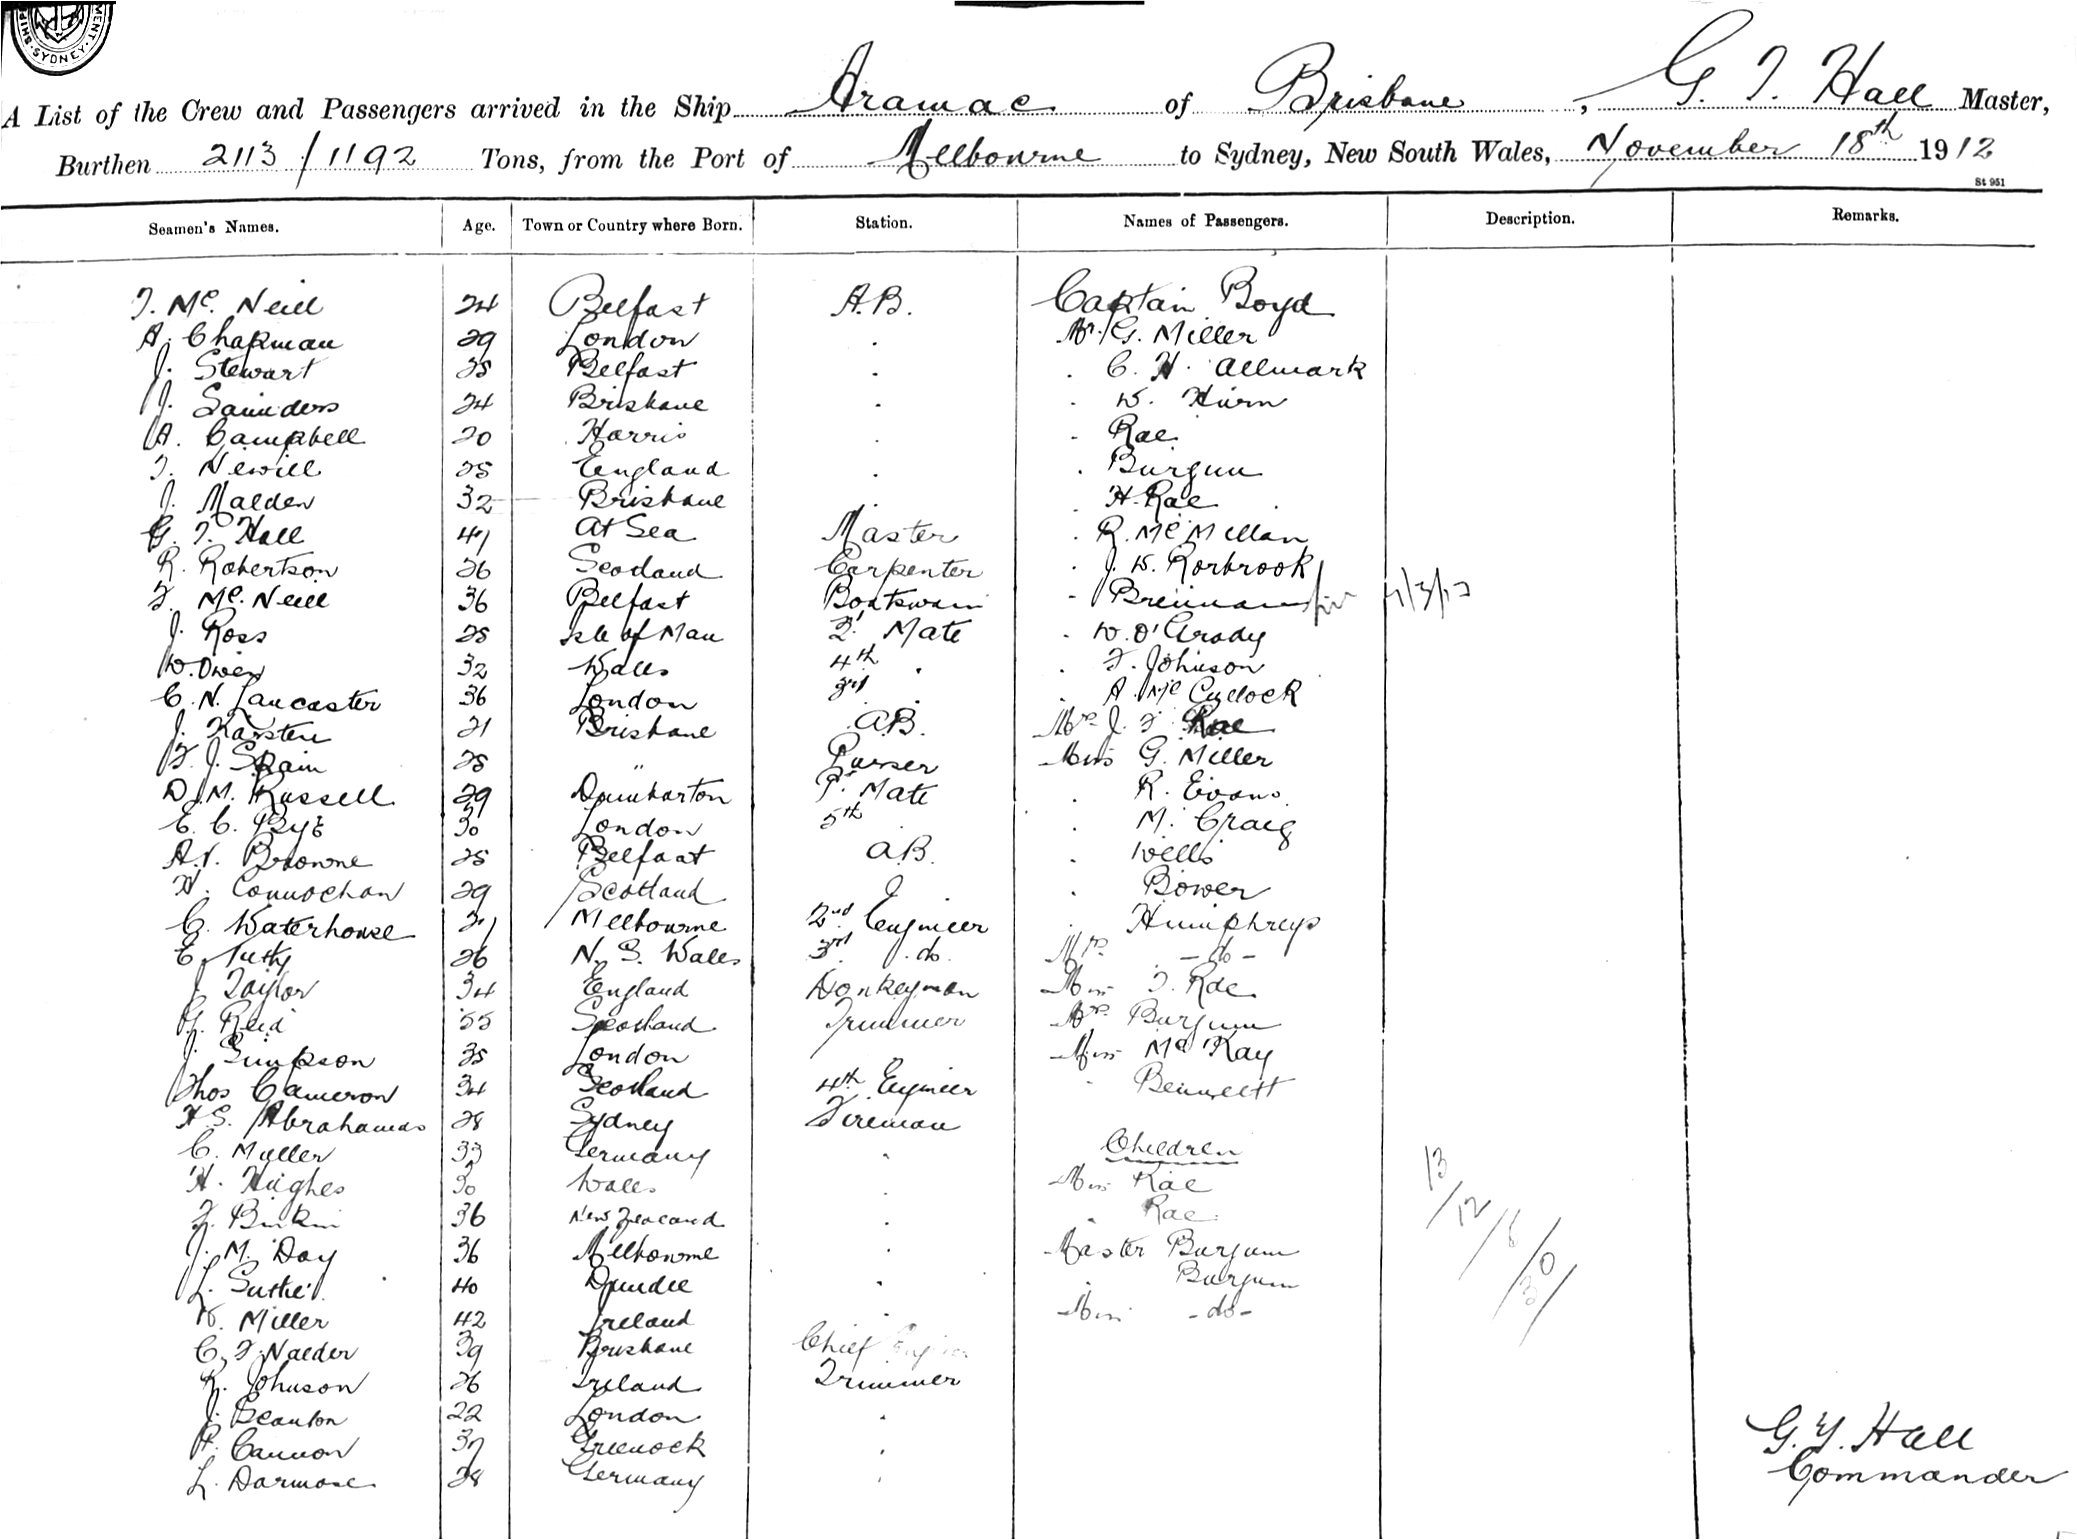 MENT. SYDNEY. SHIP
A List of the Crew and Passengers arrived in the Ship Aramac of Brisbane, G. T. Hall Master,
Burthen 2113/1192 Tons, from the Port of Melbourne to Sydney, New South Wales, November 18th 1912
St 951
Seamen's Names. Age. Town or Country where Born. Station. Names of Passengers. Description. Remarks.
T. Mc. Neill 24 Belfast A.B. Captain Boyd
A. Chapman 29 London . Mr. G. Miller
J. Stewart 25 Belfast . . C. H. Allmark
J. Saunders 24 Brisbane . . W. Hurn
A. Campbell 20 Harris . . Rae
T. Newill 25 England . . Burgum
J. Malden 32 Brisbane . . H. Rae
G. T. Hall 41 At Sea Master . R. McMillan
R. Robertson 26 Scotland Carpenter . J. W. Rorbrook
F. Mc. Neill 36 Belfast Boatswain . Brennan
J. Ross 25 Isle of Man 2' Mate . W. O'Grady
W. Owen 32 Wales 4th . . F. Johnson
C. N. Lancaster 36 London 3rd . . A. Mc Cullock
J. Karsten 21 Brisbane A.B. Mrs. J. F. Rae
F. J. Spain 25 " Purser Miss G. Miller
D. M. Russell 29 Dumbarton Mate . R. Evans
E. C. Bye 30 London 5th . M. Craig
A.V. Browne 25 Belfast A.B. . Wells
H. Connochan 29 Scotland . Bower
C. Waterhouse 31 Melbourne 2nd Engineer . Humphreys
E. Tuthy 26 N. S. Wales 3rd . do. Mrs. - do -
J. Taylor 34 England Donkeyman Miss T. Rae
G. Reid 55 Scotland Trimmer Mrs. Burgum
J. Simpson 35 London Miss McKay
Thos Cameron 34 Scotland 4th Engineer . Bennett
H. S. Abrahams 28 Sydney Fireman
C. Muller 33 Germany . Children
H. Hughes 30 Wales . Miss Rae
F. 36 New Zealand . . Rae
J. M. Day 36 Melbourne . Master Burgum
L. Suthe 40 Dundee . . Burgum
W. Miller 42 Ireland . Miss - do -
C. F. Naeder 39 Brisbane Chief
R. Johnson 26 Ireland Trimmer
J. Scanlon 22 London .
P. Cannon 37 Greenock .
L. Darmose 28 Germany .
13/12/8/0/
G. T. Hall
Commander